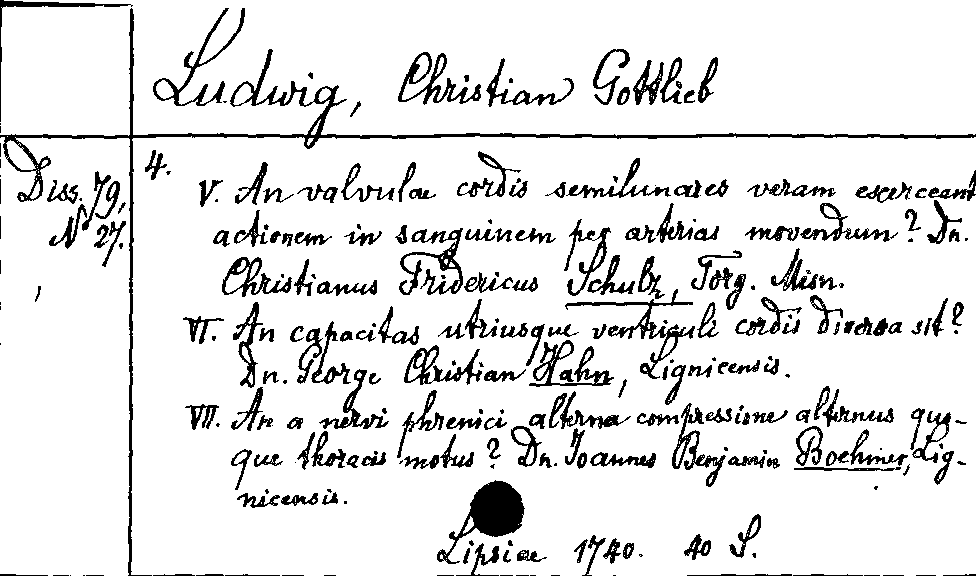 Ludwig, Christian Gottlieb
Diss. 79,
N 27.
4.
V. An valvulae cordis semilunares veram escerceant
actionem in sanguinem per arterias movendum? Dn.
Christianus Fridericus Schulz, Torg. Misn.
VI. An capacitas utriusque ventriculi cordis diversa sit?
Dn. George Christian Hahn, Lignicensis.
VII. An a nervi phrenici alterna compressione alternus quo-
que thoracis motus? Dn. Joannes Benjamin Boehmer, Lig-
nicensis.
Lipsiae 1740. 40 S.